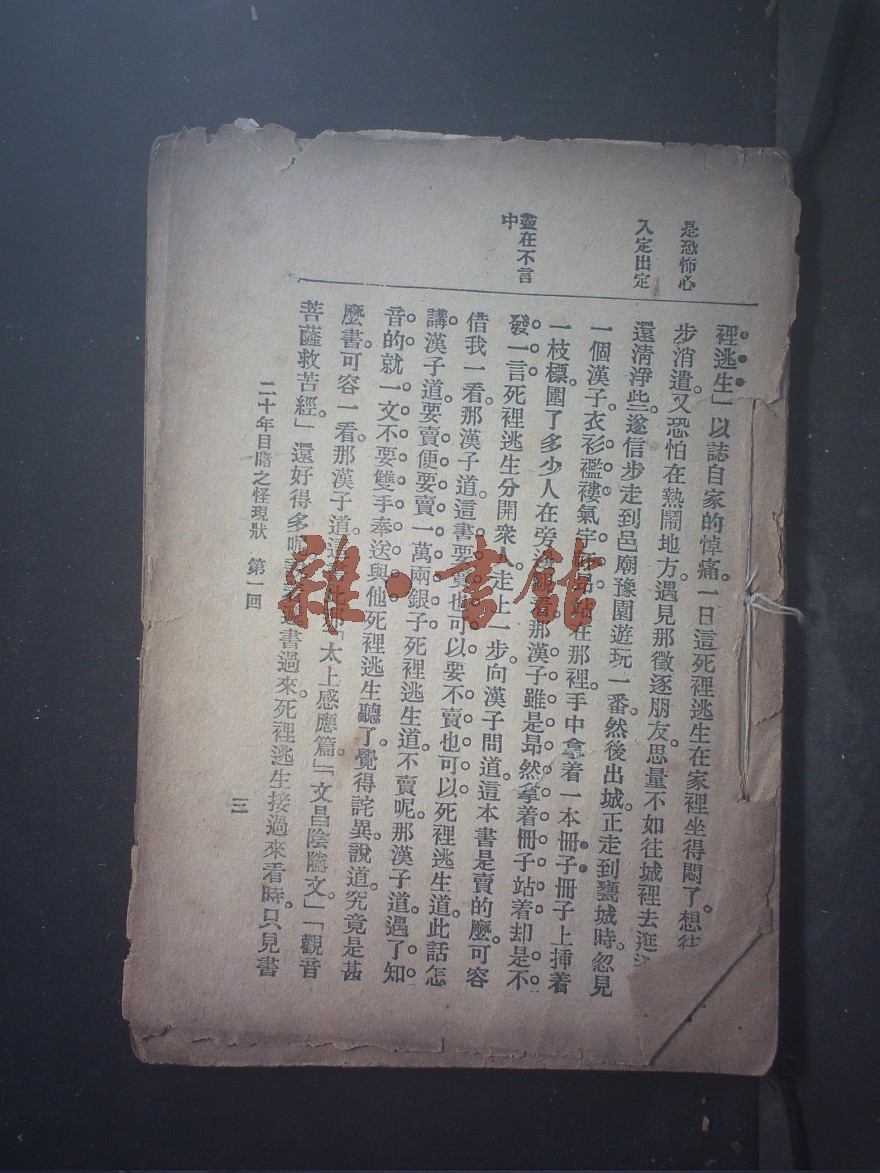 是恐怖心
入定出定
盡在不言
中
裡逃生」以誌自家的悼痛。一日這死裡逃生在家裡坐得悶了。想往
步消遣。又恐怕在熱鬧地方。遇見那徵逐朋友。思量不如往城裡去逛
還淸淨些。遂信步走到邑廟豫園遊玩一番。然後出城。正走到甕城時。忽見
一個漢子。衣衫襤褸。氣宇 站在那裡。手中拿着一本冊子。冊子上插着
一枝標。圍了多少人在旁 看。那漢子雖是昻然拿着冊子站着。却是不
發一言。死裡逃生分開衆人。走上一步。向漢子問道。這本書是賣的麼。可容
借我一看。那漢子道。這書要賣也可以。要不賣也可以。死裡逃生道。此話怎
講。漢子道。要賣便要賣一萬兩銀子。死裡逃生道。不賣呢。那漢子道。遇了知
音的。就一文不要。雙手奉送與他。死裡逃生聽了。覺得詫異。說道。究竟是甚
麼書。可容一看。那漢子道。這 比那「太上感應篇」「文昌陰隲文」「觀音
菩薩救苦經」還好得多呢。 書過來。死裡逃生接過來看時。只見書
二十年目睹之怪現狀 第一回
三
雜·書館